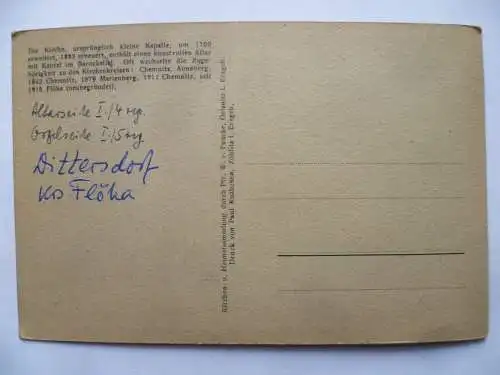 Die Kirche, ursprünglich kleine Kapelle, um 1700
erweitert, 1885 erneuert, enthält einen kunstvollen Altar
mit Kanzel im Barockstil. Oft wechselte die Zuge-
hörigkeit zu den Kirchenkreisen: Chemnitz, Annaberg,
1862 Chemnitz, 1879 Marienberg, 1911 Chemnitz, seit
1918 Flöha (neubegründet).
Altarseite I./4 reg.
Orgelseite I./5 reg
Dittersdorf
Krs Flöha
Kirchen- u. Heimatsammlung durch Pfr. v. Gelenau i. Erzgeb.
Druck von Paul Zöblitz i. Erzgeb.